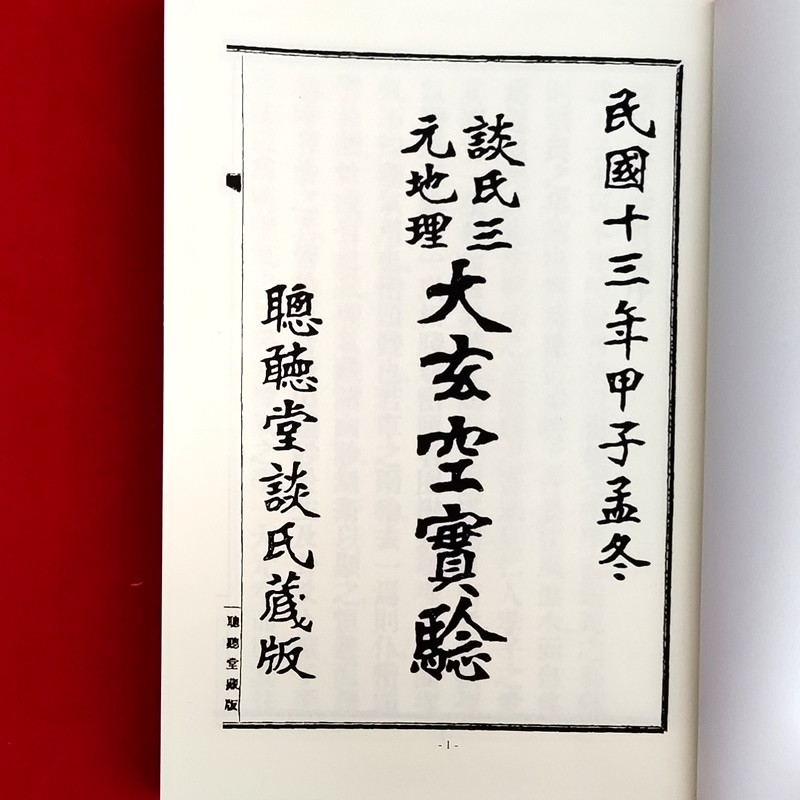 民國十三年甲子孟冬
談氏三
元地理
大玄空實驗
聰聽堂談氏蔵版
聰聽堂藏版
- 1 -